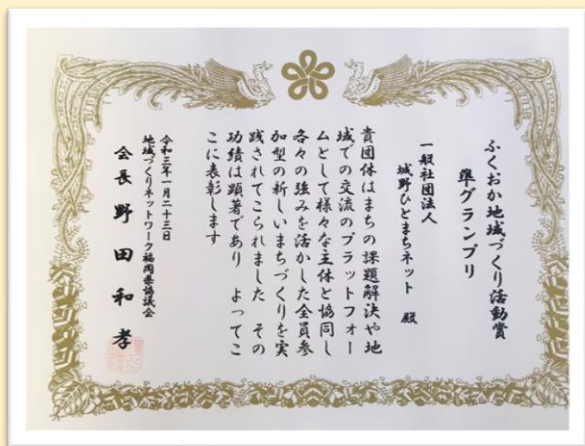 ふくおか地域づくり活動賞
準グランプリ
一般社団法人
城野ひとまちネット 殿
貴団体はまちの課題解決や地
域での交流のプラットフォー
ムとして様々な主体と協同し
各々の強みを活かした全員参
加型の新しいまちづくりを実
践されてこられました その
功績は顕著であり よってこ
こに表彰します
令和三年一月二十三日
地域づくりネットワーク福岡県協議会
会長 野田和孝